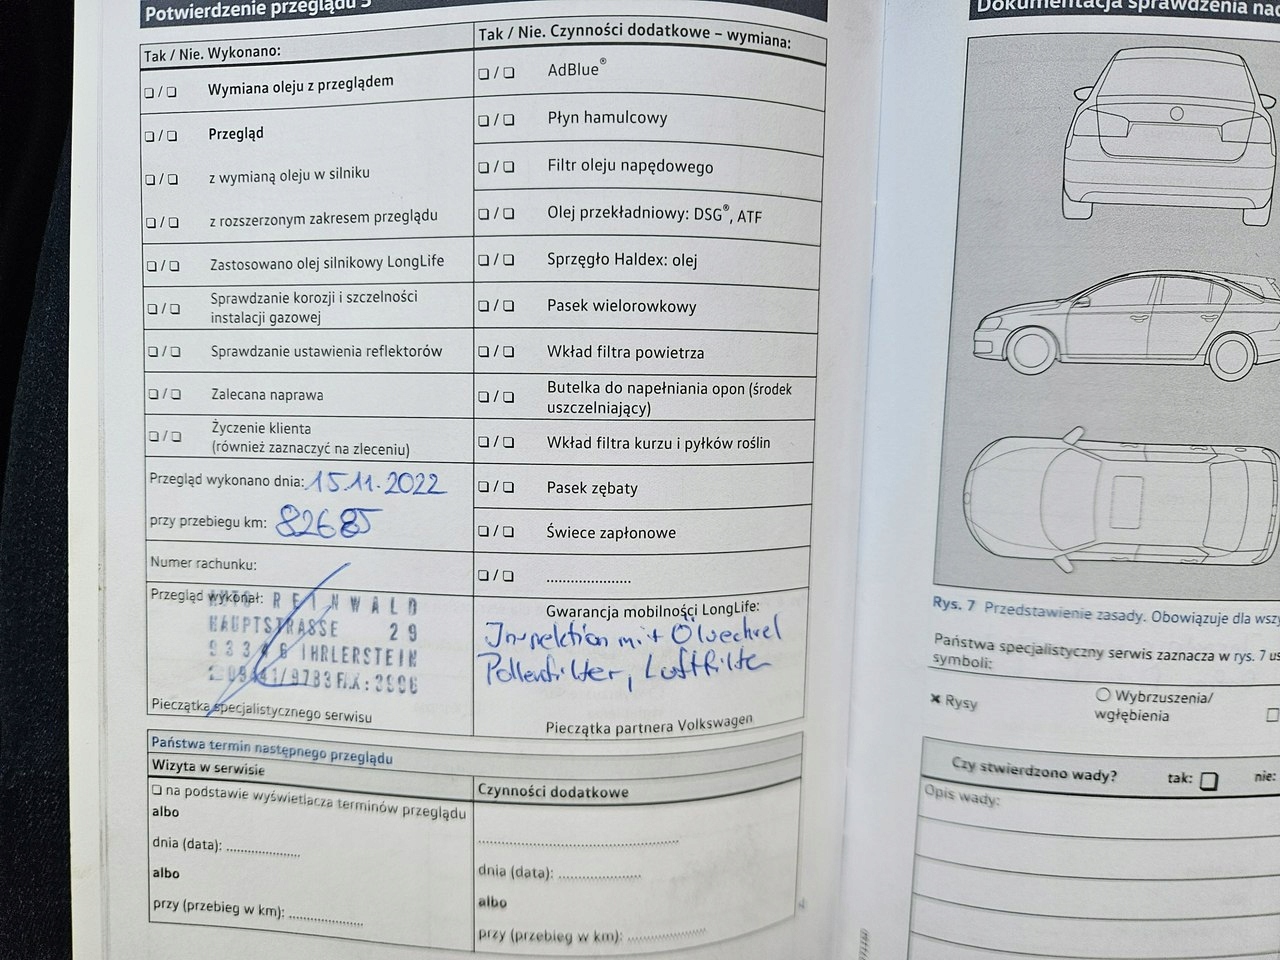 Potwierdzenie przeglądu 5
Tak / Nie. Wykonano:
❏ / ❏ Wymiana oleju z przeglądem
❏ / ❏ Przegląd
❏ / ❏ z wymianą oleju w silniku
❏ / ❏ z rozszerzonym zakresem przeglądu
❏ / ❏ Zastosowano olej silnikowy LongLife
❏ / ❏ Sprawdzanie korozji i szczelności
instalacji gazowej
❏ / ❏ Sprawdzanie ustawienia reflektorów
❏ / ❏ Zalecana naprawa
❏ / ❏ Życzenie klienta
(również zaznaczyć na zleceniu)
Przegląd wykonano dnia: 15.11.2022
przy przebiegu km: 82685
Numer rachunku:
Przegląd wykonał:
AUTO REINWALD
HAUPTSTRASSE 29
93346 IHRLERSTEIN
09441/9783 FAX: 3996
Pieczątka specjalistycznego serwisu
Tak / Nie. Czynności dodatkowe – wymiana:
❏ / ❏ AdBlue®
❏ / ❏ Płyn hamulcowy
❏ / ❏ Filtr oleju napędowego
❏ / ❏ Olej przekładniowy: DSG®, ATF
❏ / ❏ Sprzęgło Haldex: olej
❏ / ❏ Pasek wielorowkowy
❏ / ❏ Wkład filtra powietrza
❏ / ❏ Butelka do napełniania opon (środek
uszczelniający)
❏ / ❏ Wkład filtra kurzu i pyłków roślin
❏ / ❏ Pasek zębaty
❏ / ❏ Świece zapłonowe
❏ / ❏ .....................
Gwarancja mobilności LongLife:
Inspektion mit Ölwechsel
Pollenfilter, Luftfilter
Pieczątka partnera Volkswagen
Państwa termin następnego przeglądu
Wizyta w serwisie
❏ na podstawie wyświetlacza terminów przeglądu
albo
dnia (data): ..................
albo
przy (przebieg w km): ..................
Czynności dodatkowe
..................................................
dnia (data): ....................
albo
przy (przebieg w km): ...................
Dokumentacja sprawdzenia
Rys. 7 Przedstawienie zasady. Obowiązuje dla
Państwa specjalistyczny serwis zaznacza w rys. 7
symboli:
× Rysy
○ Wybrzuszenia/
wgłębienia
Czy stwierdzono wady? tak: ❏ nie:
Opis wady: